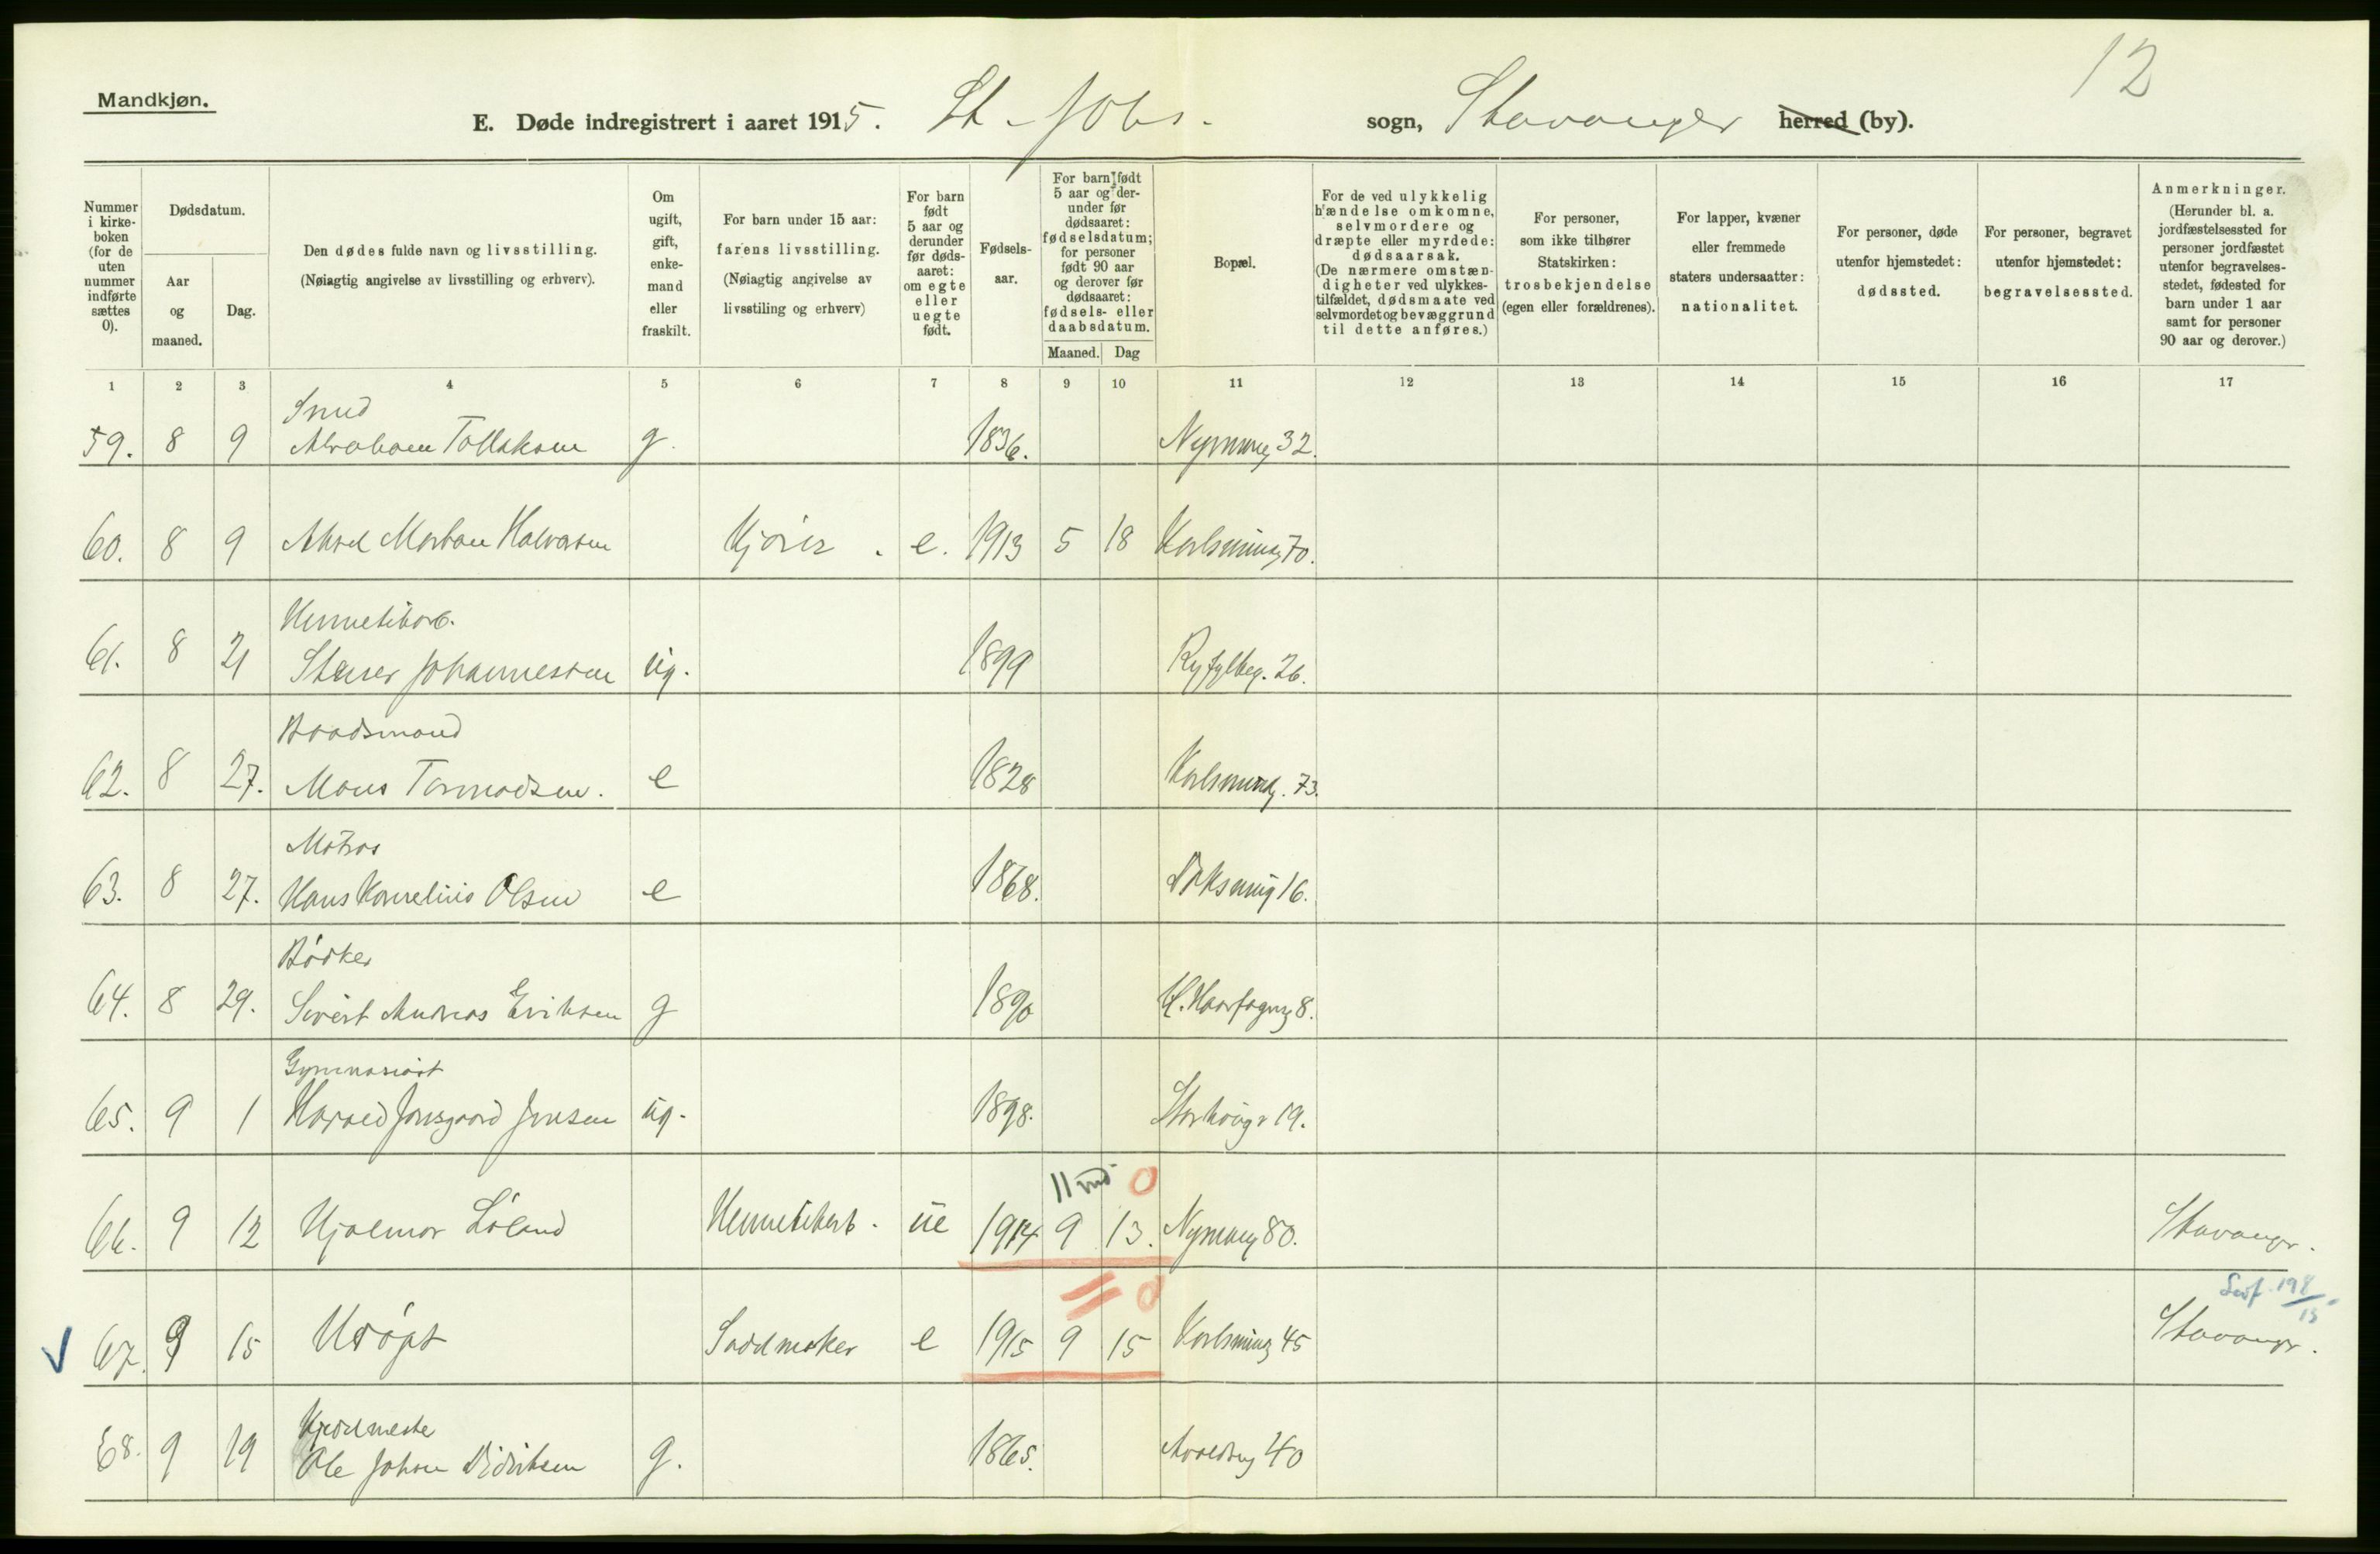 12
Mandkjøn.
E. Døde indregistrert i aaret 1915. St. Johs. sogn, Stavanger herred (by).
Nummer i kirkeboken (for de uten nummer indførte sættes 0).
Dødsdatum.
Aar og maaned.
Dag.
Den dødes fulde navn og livsstilling. (Nøiagtig angivelse av livsstilling og erhverv).
Om ugift, gift, enkemand eller fraskilt.
For barn under 15 aar: farens livsstilling. (Nøiagtig angivelse av livsstiling og erhverv)
For barn født 5 aar og derunder før dødsaaret: om egte eller uegte født.
Fødselsaar.
For barn født 5 aar og derunder før dødsaaret: fødselsdatum; for personer født 90 aar og derover før dødsaaret: fødsels- eller daabsdatum.
Maaned. Dag
Bopæl.
For de ved ulykkelig hændelse omkomne, selvmordere og dræpte eller myrdede: dødsaarsak. (De nærmere omstændigheter ved ulykkestilfældet, dødsmaate ved selvmordet og bevæggrund til dette anføres.)
For personer, som ikke tilhører Statskirken: trosbekjendelse (egen eller forældrenes).
For lapper, kvæner eller fremmede staters undersaatter: nationalitet.
For personer, døde utenfor hjemstedet: dødssted.
For personer, begravet utenfor hjemstedet: begravelsessted.
Anmerkninger. (Herunder bl. a. jordfæstelsessted for personer jordfæstet utenfor begravelsesstedet, fødested for barn under 1 aar samt for personer 90 aar og derover.)
1 2 3 4 5 6 7 8 9 10 11 12 13 14 15 16 17
Smed
59. 8 9 Abraham Tollaksen g. 1836. Nymannsg 32.
60. 8 9 Aksel Morton Halvorsen Kjører . e. 1913 5 18 Karlsming 70.
Hermetikarb.
61. 8 21 Stener Johannessen ug. 1899 Ryfylkeg. 26.
Baadsmand
62. 8 27. Mons Tormodsen. e 1828 Karlsming. 73.
Matros
63. 8 27. Hans Kornelius Olsen e 1868. 16.
Bødker
64. 8 29. Sivert Andreas Eriksen g 1890 H. Haarfagrsg 8.
Gymnasiast
65. 9 1 Harald Jonsgaard Jensen ug. 1898. Storhaugv 19.
11 md 0
66. 9 12 Hjalmar Løland Hermetikarb. ue 1914 9 13. Nymansg 80. Stavanger.
0
67. 9 15 Udøpt Sadelmaker e 1915 9 15 Karlsming 45 Stavanger.
198/15
68. 9 19 Ole Johan Didriksen g. 1865. 40